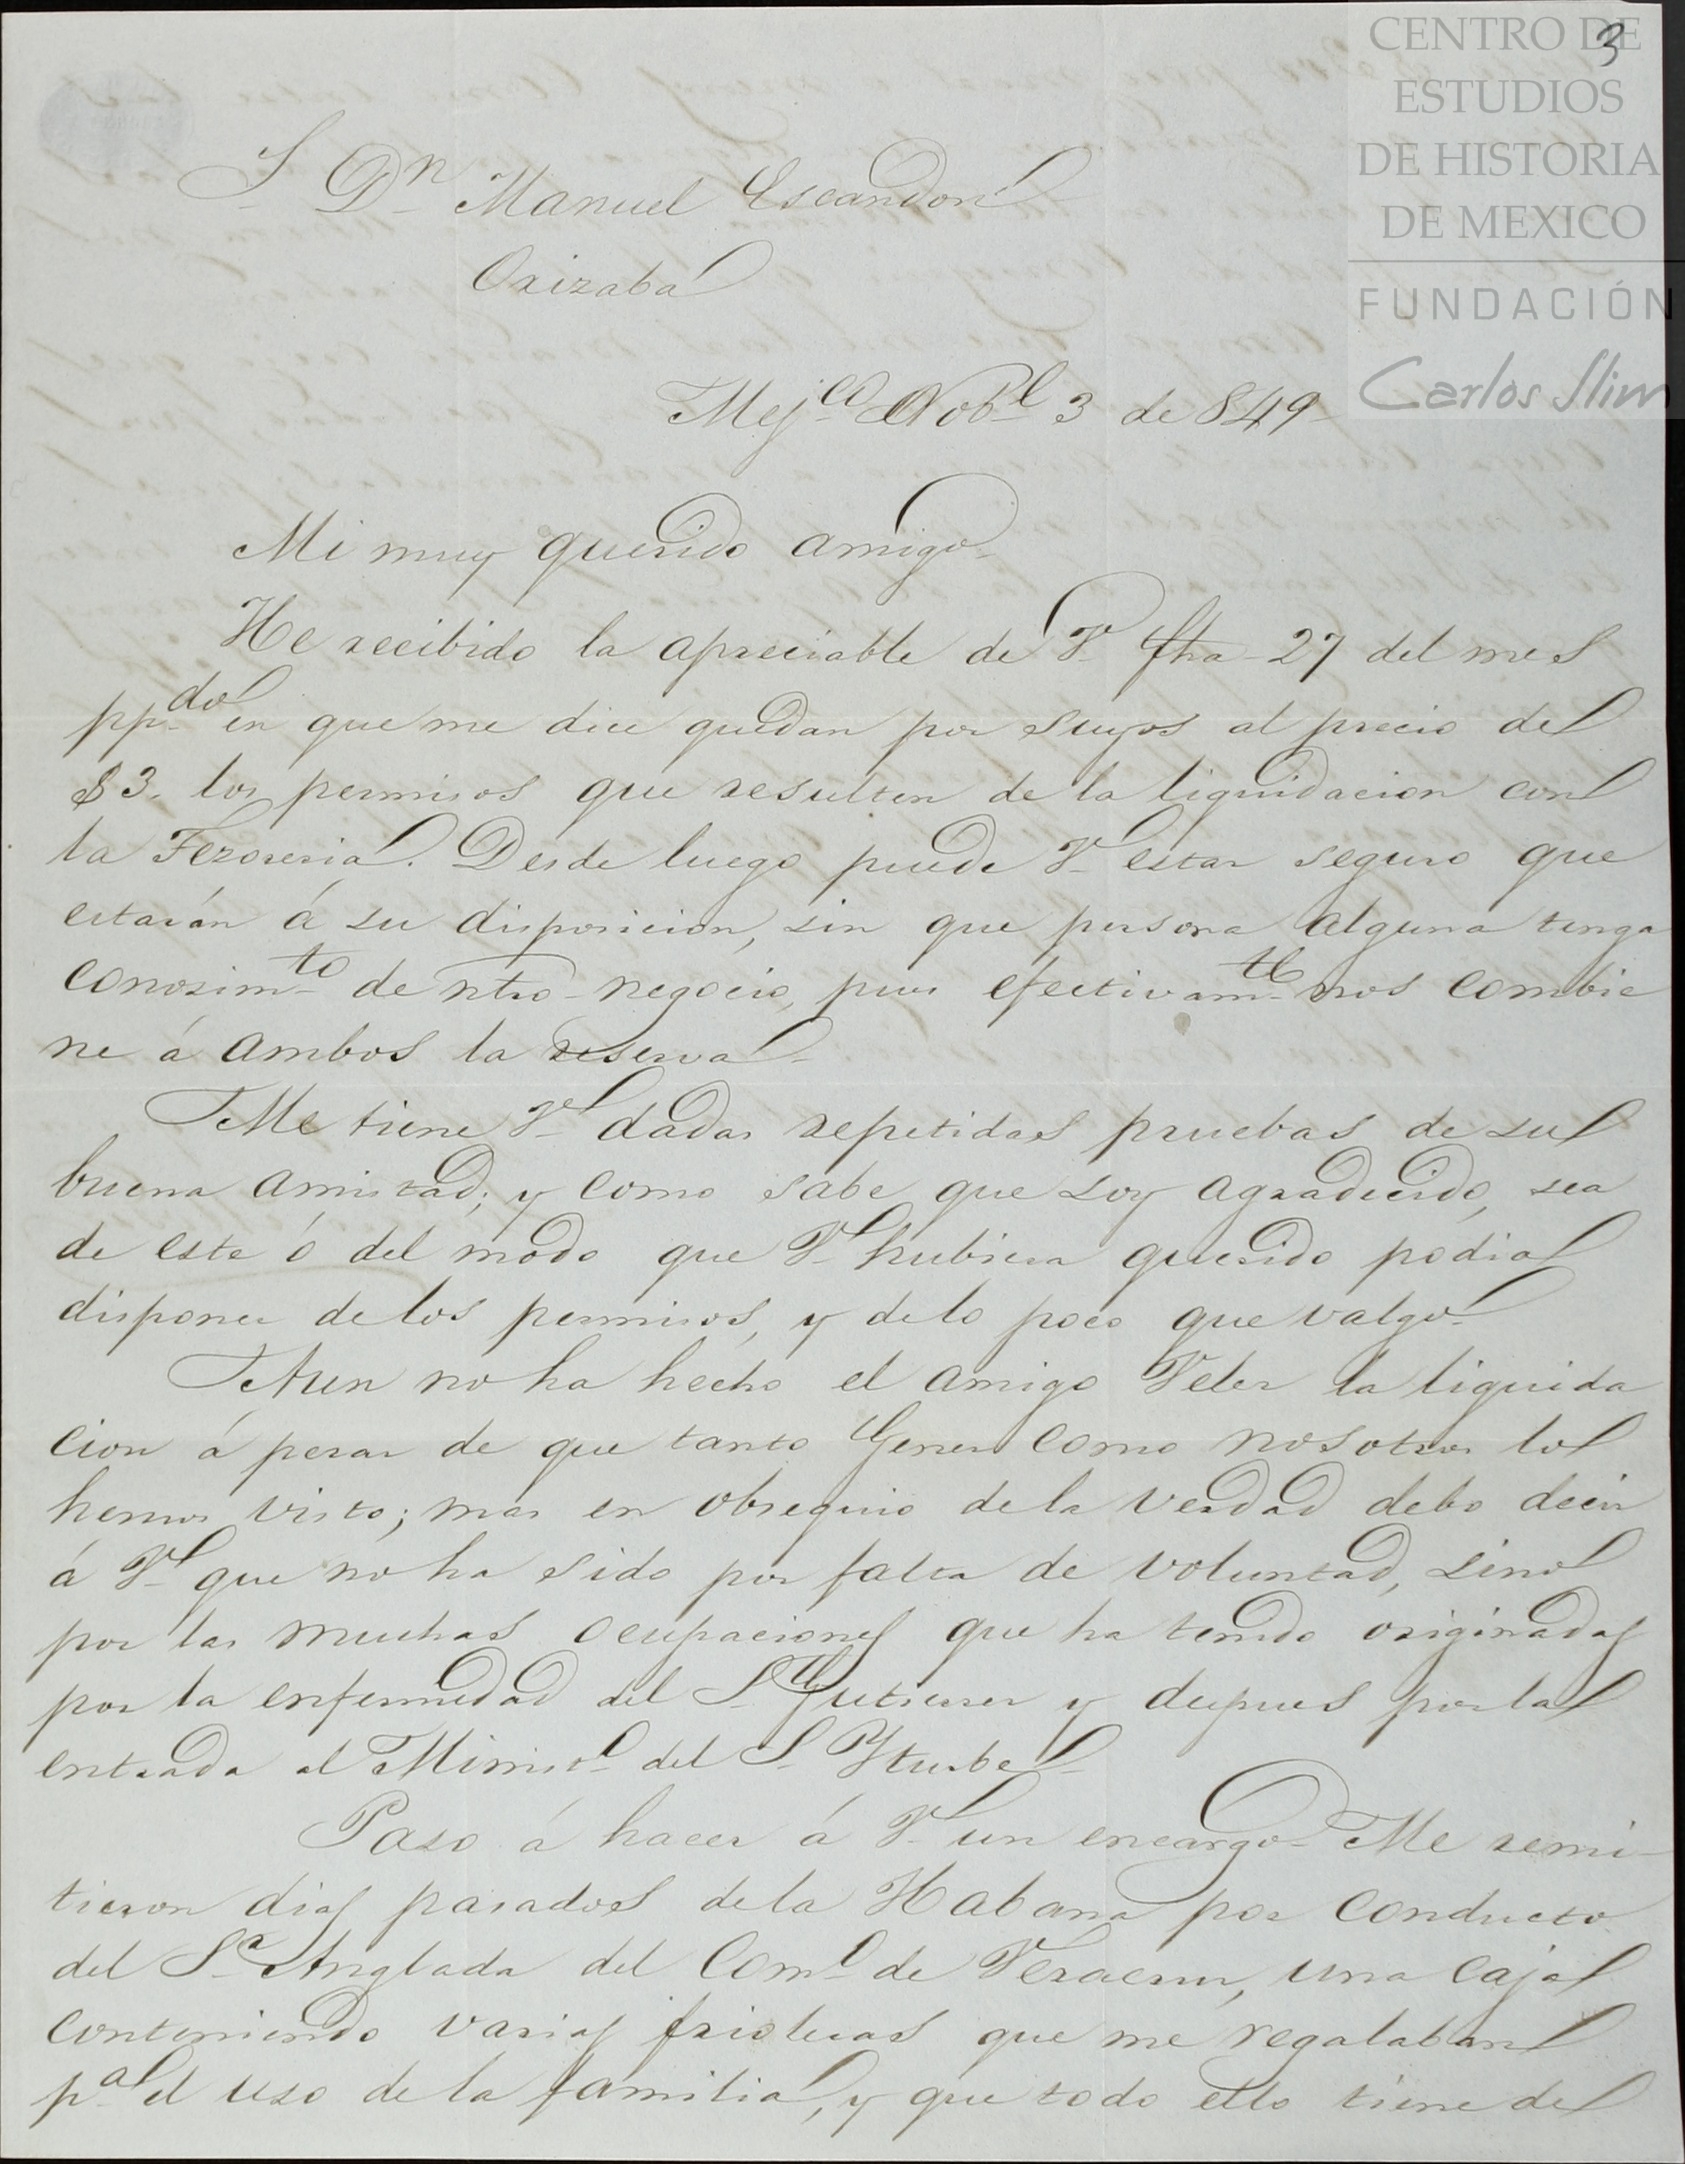 3
CENTRO DE
ESTUDIOS
DE HISTORIA
DE MEXICO
FUNDACIÓN
Carlos Slim
S. Dn Manuel Escandon
Orizaba
Mejco Nobe 3 de 849
Mi muy querido amigo
He recibido la apreciable de V. fha 27 del mes
ppdo en que me dice quedan por suyos al precio de
$3. los permisos que resulten de la liquidacion con
la Tezoreria. Desde luego puede V. estar seguro que
estarán á su disposicion, sin que persona alguna tenga
conosimto de ntro negocio, pues efectivamte nos combie
ne á ambos la reserva
Me tiene V. dadas repetidas pruebas de su
buena amistad; y como sabe que soy agradecido, sea
de este ó del modo que V. hubiera querido podia
disponer de los permisos, y de lo poco que valgo
Aun no ha hecho el amigo Velez la liquida
cion á pesar de que tanto Gener como nosotros lo
hemos visto; mas en obsequio de la verdad debo decir
á V. que no ha sido por falta de voluntad, sino
por las muchas ocupaciones que ha tenido originadas
por la enfermedad del S. Gutierrez y despues por la
entrada al Minisо del S. Yturbe
Paso á hacer á V. un encargo. Me remi-
tieron dias pasados de la Habana por conducto
del Sr Anglada del Como de Veracruz, una caja
conteniendo varias frioleras que me regalaban
pa el uso de la familia, y que todo ello tiene de